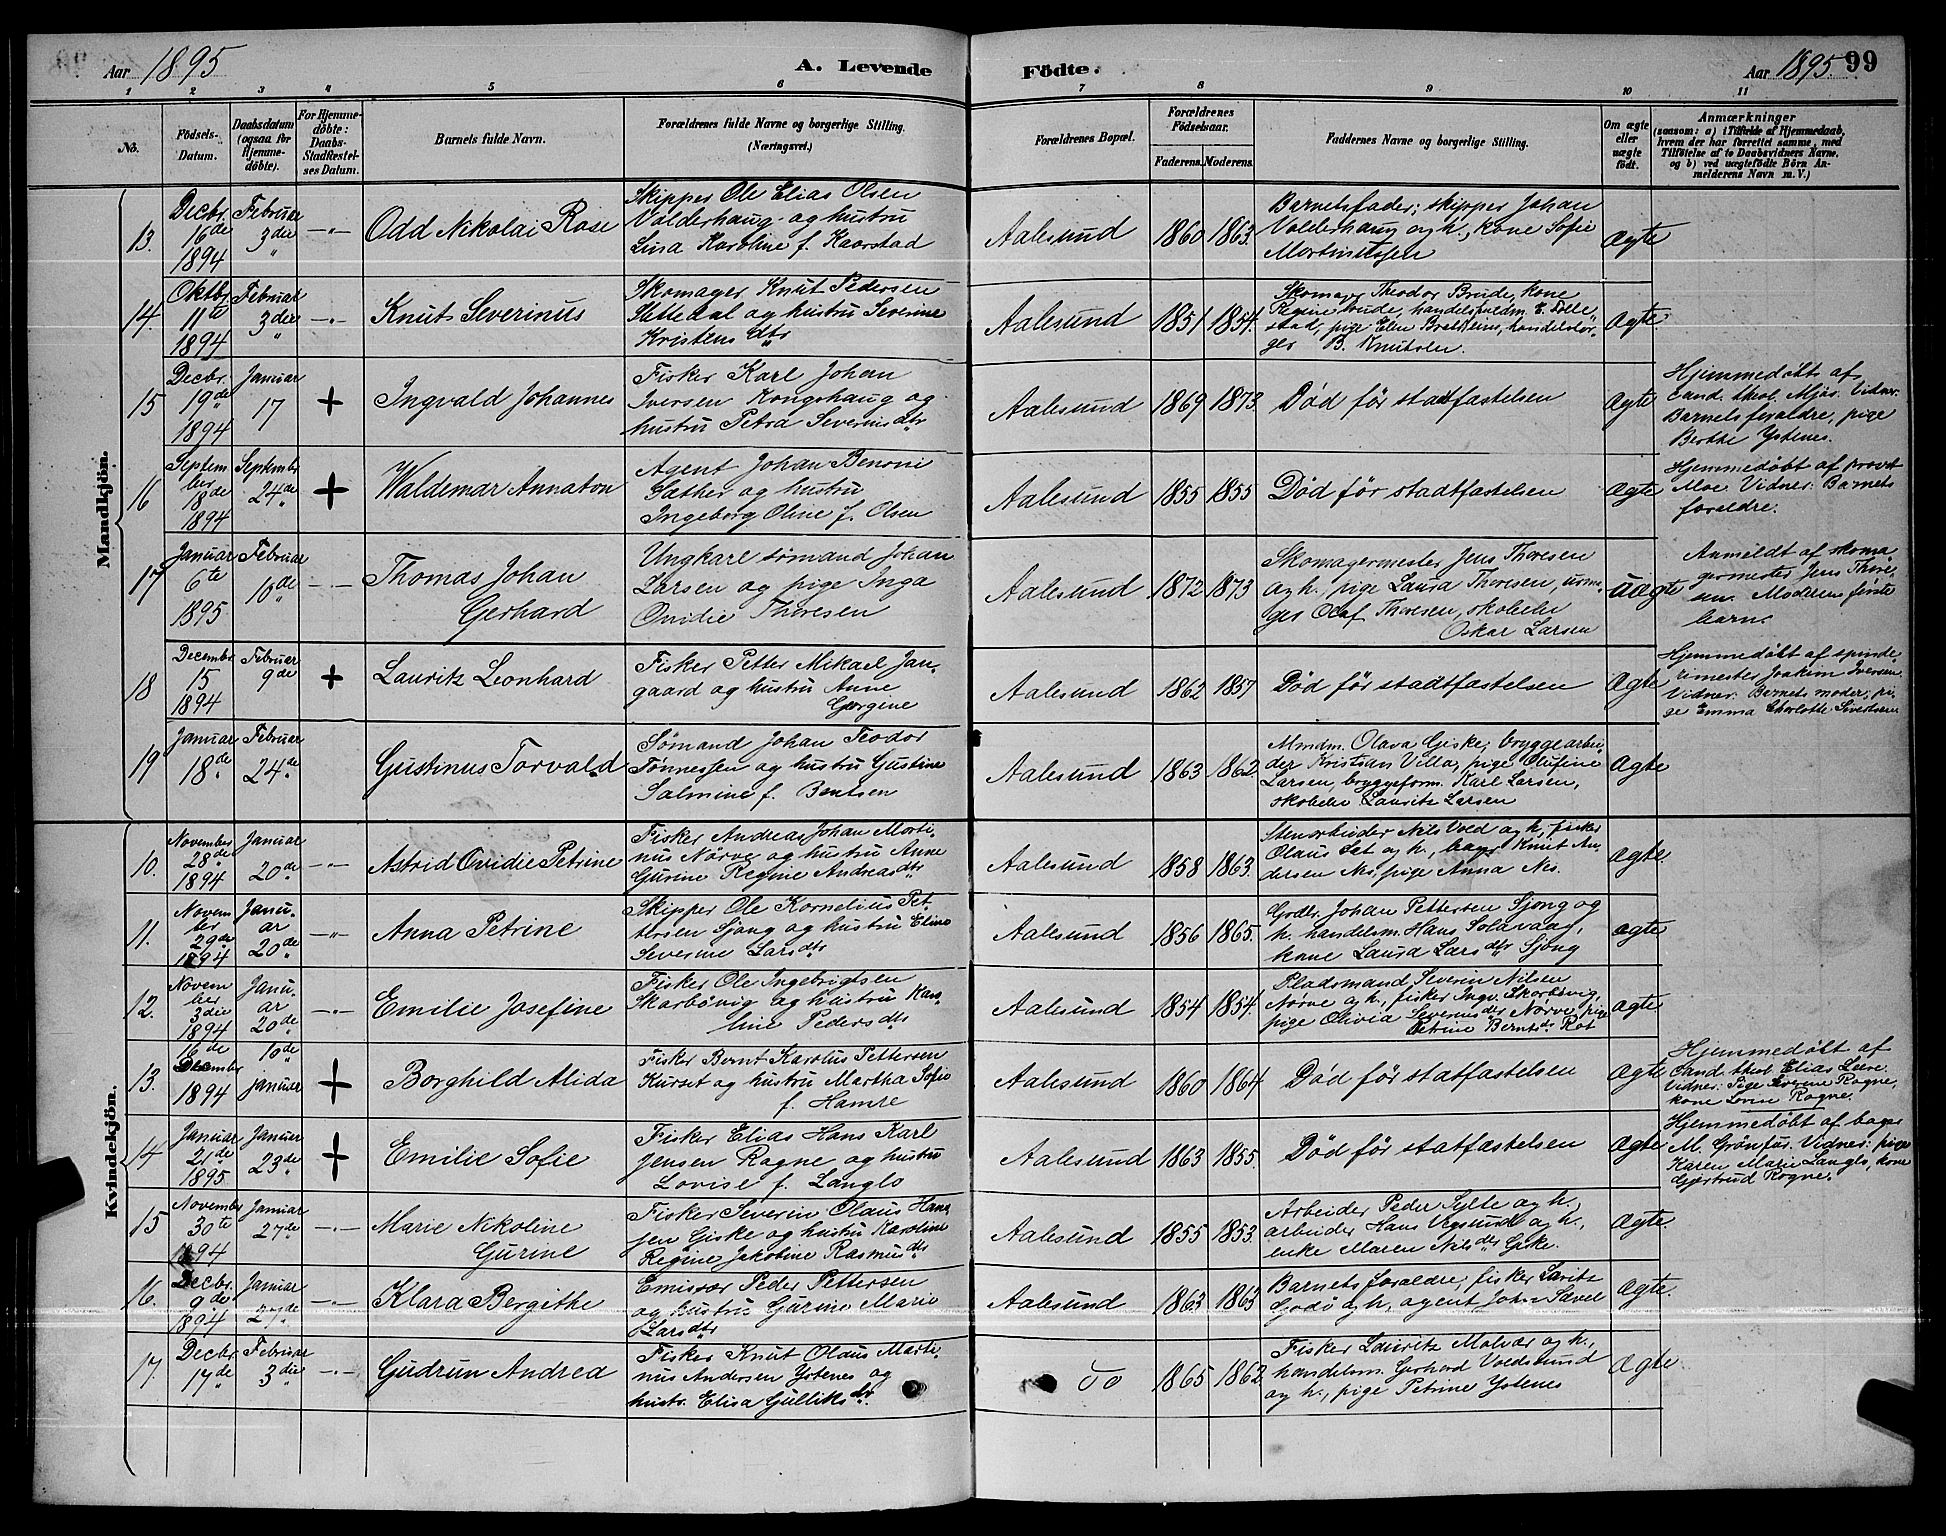 Aar 1895
A. Levende
Födte.
Aar 1895. 99
1 2 3 4 5 6 7 8 9 10 11
No.
Födsels-Datum.
Daabsdatum (ogsaa for Hjemmedöbte).
For Hjemmedöbte: Daabs-Stadfæstelses Datum.
Barnets fulde Navn.
Forældrenes fulde Navne og borgerlige Stilling. (Næringsvei.)
Forældrenes Bopæl.
Forældrenes Födselsaar.
Faderens. Moderens.
Faddernes Navne og borgerlige Stilling.
Om ægte eller uægte födt.
Anmærkninger
(saasom: a) i Tilfælde af Hjemmedaab, hvem der har forrettet samme, med Tilföielse af to Daabsvidners Navne, og b) ved uægtefödte Börn Anmelderens Navn m. V.)
Mandkjön.
13. Decbr. 16de 1894
Februar 3die "
-"-
Odd Nikolai Rose
Skipper Ole Elias Olsen
Valderhaug og hustru
Lina Karoline f. Kaarstad
Aalesund 1860 1863.
Barnets fader; skipper Johan
Valderhaug og h., kone Sofie
Martinussen
Ægte
14. Oktbr. 11te 1894
Februar 3die "
-"-
Knut Severinus
Skomager Knut Pedersen
Sættedal og hustru Severine
Kristensdtr
Aalesund 1851 1854.
Skomager Theodor Brude, kone
Regine Brude, handelsfuldm. E. Tolle-
stad, pige Elen Bratheim, handelsbor-
ger B. Knutsen.
Ægte
15 Decbr. 19de 1894
Januar 17
+
Ingvald Johannes
Fisker Karl Johan
Iversen Kongshaug og
hustru Petra Severinsdtr
Aalesund 1869 1873.
Død før stadfæstelsen
Ægte
Hjemmedøbt af
cand. theol. Mjøs. Vidner:
Barnets forældre, pige
Berthe Ystenes.
16 September 18de 1894
Septembr 24de
+
Waldemar Annaton
Agent Johan Benoni
Sæther og hustru
Ingeborg Oline f. Olsen
Aalesund 1855 1855
Død før stadtfæstelsen
Ægte
Hjemmedøbt af provst
Moe. Vidner: Barnets
forældre.
17 Januar 6te 1895
Februar 10de
-"-
Thomas Johan
Gerhard
Ungkarl sømand Johan
Larsen og pige Inga
Ovidie Thoresen
Aalesund 1872 1873
Skomagermester Jens Thoresen
og h., pige Laura Thoresen, urma-
ger Olaf Thoresen, skoelev
Oskar Larsen
uægte
Anmeldt af skoma-
germester Jens Thore-
sen. Moderens første
barn.
18 Decembr 15 1894
Februar 9de
+
Lauritz Leonhard
Fisker Petter Mikael Jan-
gaard og hustru Anne
Gørgine
Aalesund 1862 1857
Død før stadtfæstelsen
Ægte
Hjemmedøbt af spinde-
rimester Joakim Iversen.
Vidner: Barnets moder, pi-
ge Emma Charlotte Sivertsen
19 Januar 18de
Februar 24de
Gustinus Torvald
Sømand Johan Teodor
Tønnessen og hustru Gustine
Salmine f. Bentsen
Aalesund 1863 1862.
Mmdm. Olava Giske, bryggearbei-
der Kristian Villa, pige Olufine
Larsen, bryggeform. Karl Larsen,
skoelev Lauritz Larsen
Ægte
Kvindekjön.
10. November 28de 1894
Januar 20de
-"-
Astrid Ovidie Petrine
Fisker Andreas Johan Marti-
nus Nörve og hustru Anne
Gurine Regine Andreasdtr
Aalesund 1858 1863.
Stenarbeider Nils Vold og h., fisker
Olaus Sæt og h., bager Knut An-
dersen Nes, pige Anna Nes.
Ægte
11. November 29de 1894
Januar 20de
-"-
Anna Petrine
Skipper Ole Kornelius Pet-
tersen Sjong og hustru Eline
Severine Larsdtr
Aalesund 1856 1865.
Grdbr. Johan Pettersen Sjong og
h., handelsm. Hans Solavaag,
kone Laura Larsdtr Sjong
ægte
12. November 3die 1894
Januar 20de
-"-
Emilie Josefine
Fisker Ole Ingebrigtsen
Skarbövig og hustru Karo-
line Pedersdtr
Aalesund 1854 1854.
Pladsmand Severin Nilsen
Nørve og h., fisker Ingv. Skarbøvig,
pige Olivia Severinsdtr Nørve, pige
Petrine Berntsdtr Rot
ægte
13. 16de December 1894
10de januar
+
Borghild Alida
Fisker Bernt Karolus Pettersen
Kursæt og hustru Martha Sofie
f. Hamre
Aalesund 1860 1864
Død før statfæstelsen
Ægte
Hjemmedøbt af
Cand. theol. Elias
Vidner: Pige Severine Rogne,
kone Lovise Rogne.
14 Januar 21de 1895
Januar 23de
+
Emilie Sofie
Fisker Elias Hans Karl
Jensen Rogne og hustru
Lovise f. Langlo
Aalesund 1863 1855.
Død før statfæstelsen
Ægte
Hjemmedøbt af bager
M. Grönfur. Vidner: pige
Karen Marie Langlo, kone
Gjertrud Rogne.
15 November 30te 1894
Januar 27de
-"-
Marie Nikoline
Gurine
Fisker Severin Olaus Han-
sen Giske og hustru Karoline
Regine Jakobine Rasmusdtr
Aalesund 1855 1853.
Arbeider Peder Sylte og h.,
arbeider Hans Vegsund og h.,
enke Maren Nilsdtr Giske.
Ægte
16. Decbr. 9de 1894
Januar 27de
-"-
Klara Bergithe
Emissær Peder Pettersen
og hustru Gurine Marie
Larsdtr
Aalesund 1863 1863
Barnets forældre, fisker Lauritz
Godø og h., agent John Sævel
Ægte.
17. Decbr. 17de
Februar 3die
-"-
Gudrun Andrea
Fisker Knut Olaus Marti-
nus Andersen Ystenes og
hustr. Elisa Gulliksdtr.
do 1865 1862
Fisker Lauritz Molvær og h.,
handelsm. Gerhard Voldsund
og h., pige Petrine Ystenes
Ægte